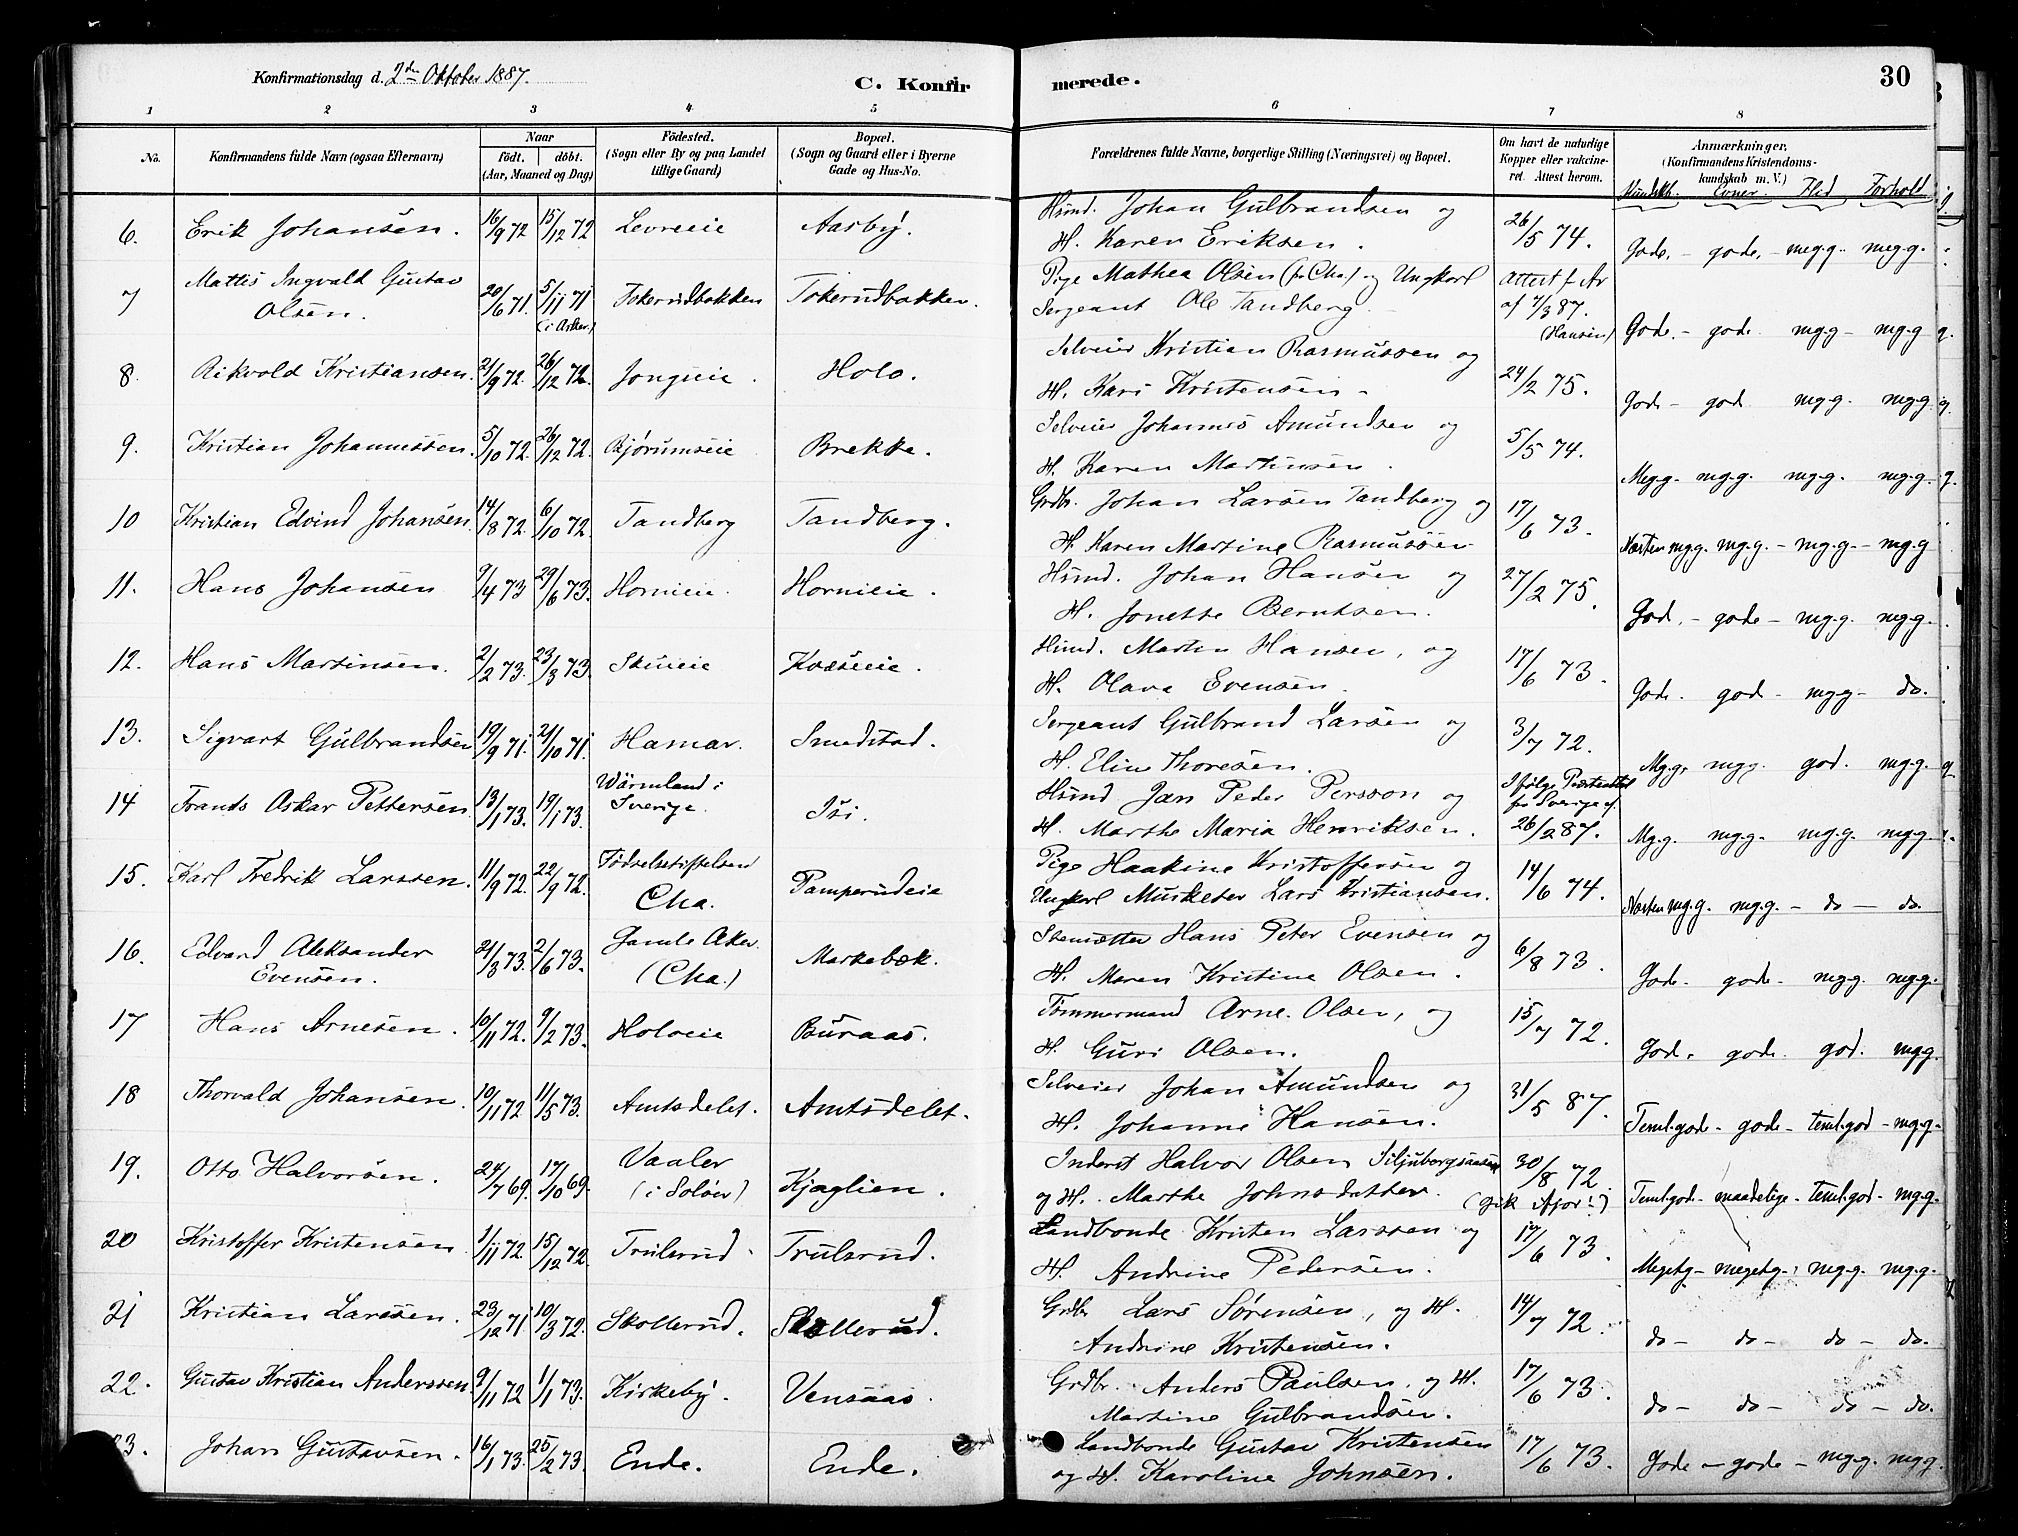 Konfirmationsdag d. 2den Oktober 1887.
C. Konfirmerede.
30
1 2 3 4 5 6 7 8
No. Konfirmandens fulde Navn (ogsaa Efternavn) Naar født. døbt. (Aar, Maaned og Dag) Fødested. (Sogn eller By og paa Landet tillige Gaard) Bopæl. (Sogn og Gaard eller i Byerne Gade og Hus-No. Forældrenes fulde Navne, borgerlige Stilling (Næringsvei) og Bopæl. Om havt de naturlige Kopper eller vakcineret. Attest herom. Anmærkninger. (Konfirmandens Kristendomskundskab m. V.)
Kundsk. Evner Flid Forhold
6. Erik Johansen. 16/9 72 15/12 72 Levreeie Aasby. Husmd. Johan Gulbrandsen og
H. Karen Eriksen. 26/5 74. Gode. - gode. - meg.g. meg.g.
7 Mattis Ingvald Gustav
Olsen. 20/6 71. 5/11 71 (i Asker.) Tokerudbakken Tokerudbakken. Pige Mathea Olsen (fr Cha.) og Ungkarl
Sergeant Ole Tandberg. Attest f. Ar
af 7/3 87.
(Hansen) Gode. - gode. mg.g - mg.g
8. Rikvold Kristiansen. 21/9 72. 26/12 72. Jongseie. Holo. Selveier Kristian Rasmussen og
H. Kari Kristensen. 24/2 75. Gode - god. mg.g. mg.g.
9. Kristian Johannessen. 5/10 72. 26/12 72. Bjørumseie Brekke. Selveier Johannes Amundsen og
H. Karen Martinsen. 5/5 74. Meg.g. mg.g. mg.g. mg.g.
10 Kristian Edvind Johansen. 14/8 72. 6/10 72. Tandberg Tandberg. Grdbr. Johan Larsen Tandberg og
H. Karen Martine Rasmussen 17/6 73. Næsten mg.g. mg.g. - mg.g. - mg.g
11. Hans Johansen 9/4 73 29/6 73. Hornieie. Hornieie. Husmd. Johan Hansen og
H. Jonette Berntsen. 27/2 75. God. - gode - mg.g. mg.g.
12. Hans Martinsen. 2/2 73. 23/3 73. Skuieie Kosseie. Husmd. Martin Hansen, og
H. Olava Evensen. 17/6 73. Gode. god - mg.g - do.
13. Sigvart Gulbrandsen 19/9 71. 21/10 71. Hamar. Smedstad. Sergeant Gulbrand Larsen og
H. Eline Thoresen. 3/7 72. Mg.g. mg.g. god. mg.g.
14 Frands Oskar Pettersen 13/1 73. 19/1 73. Wärmland i
Sverige. Isi. Husmd Jan Peder Persson og
H. Marthe Maria Henriksen. Ifølge Præsteattest
fra Sverige af
26/2 87. Mg.g. mg.g. mg.g. mg.g.
15. Karl Fredrik Larssen. 11/9 72. 22/9 72. Fødselsstiftelsen
Cha. Pamperudeie Pige Haakine Kristoffersen og
Ungkarl Musketer Lars Kristiansen. 14/6 74. Næsten mg.g. mg.g. - do - do.
16. Edvard Aleksander
Evensen. 21/3 73. 2/6 73. Gamle Aker
(Cha.) Markebæk. Stensætter Hans Peter Evensen og
H. Maren Kristine Olsen. 6/8 73. Gode. gode. mg.g. mg.g.
17 Hans Arnesen. 10/11 72. 9/2 73. Holoeie Buraas. Tømmermand Arne Olsen, og
H. Guri Olsen. 15/7 72. God. gode. god. mg.g.
18 Thorvald Johansen. 10/11 72 11/5 73. Amtsdelet. Amtsdelet. Selveier Johan Amundsen og
H. Johanne Hansen. 31/5 87. Teml. gode - gode - teml. god - mg.g.
19. Otto Halvorsen. 24/7 69. 17/10 69. Vaaler
(i Soløer) Kjaglien. Inderst Halvor Olsen Siljubergsaasen
og H. Marthe Johnsdatter. (gik ifjor!) 30/8 72 Teml. god. - maadelige - teml. god - mg.g.
20 Kristoffer Kristensen 1/11 72. 15/12 72. Trulsrud. Trulsrud. Landbonde Kristen Larssen og
H. Andrine Pedersen. 17/6 73. Megetg - megetg. mg.g. mg.g.
21 Kristian Larssen. 23/12 71 10/3 72. Skollerud. Skollerud. Grdbr Lars Sørensen, og H.
Andrine Kristensen. 14/7 72. do - do - do - do.
22. Gustav Kristian Anderssen. 9/11 72 1/1 73. Kirkeby. Vensaas. Grdbr. Anders Paulsen, og H.
Martine Gulbrandsen. 17/6 73. do - do - do - do.
23. Johan Gustavsen. 16/1 73. 25/2 73. Ende. Ende. Landbonde Gustav Kristensen
og H. Karoline Johnsen. 17/6 73. Gode - gode - mg.g. mg.g.